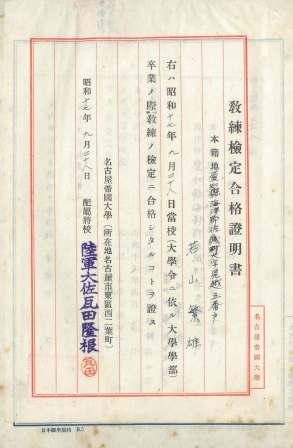 教練檢定合格證明書
本籍地愛知縣海津郡佐織町大字見越五番戸
若山繁雄
右ハ昭和十七年九月二十八日當校(大學令ニ依ル大學學部)
卒業ノ際教練ノ檢定ニ合格シタルコトヲ證ス
名古屋帝國大學(所在地名古屋市東區西二葉町)
昭和十七年九月二十八日
配屬將校
陸軍大佐瓦田隆根
瓦田
名古屋帝國大學
日本標準規格B5